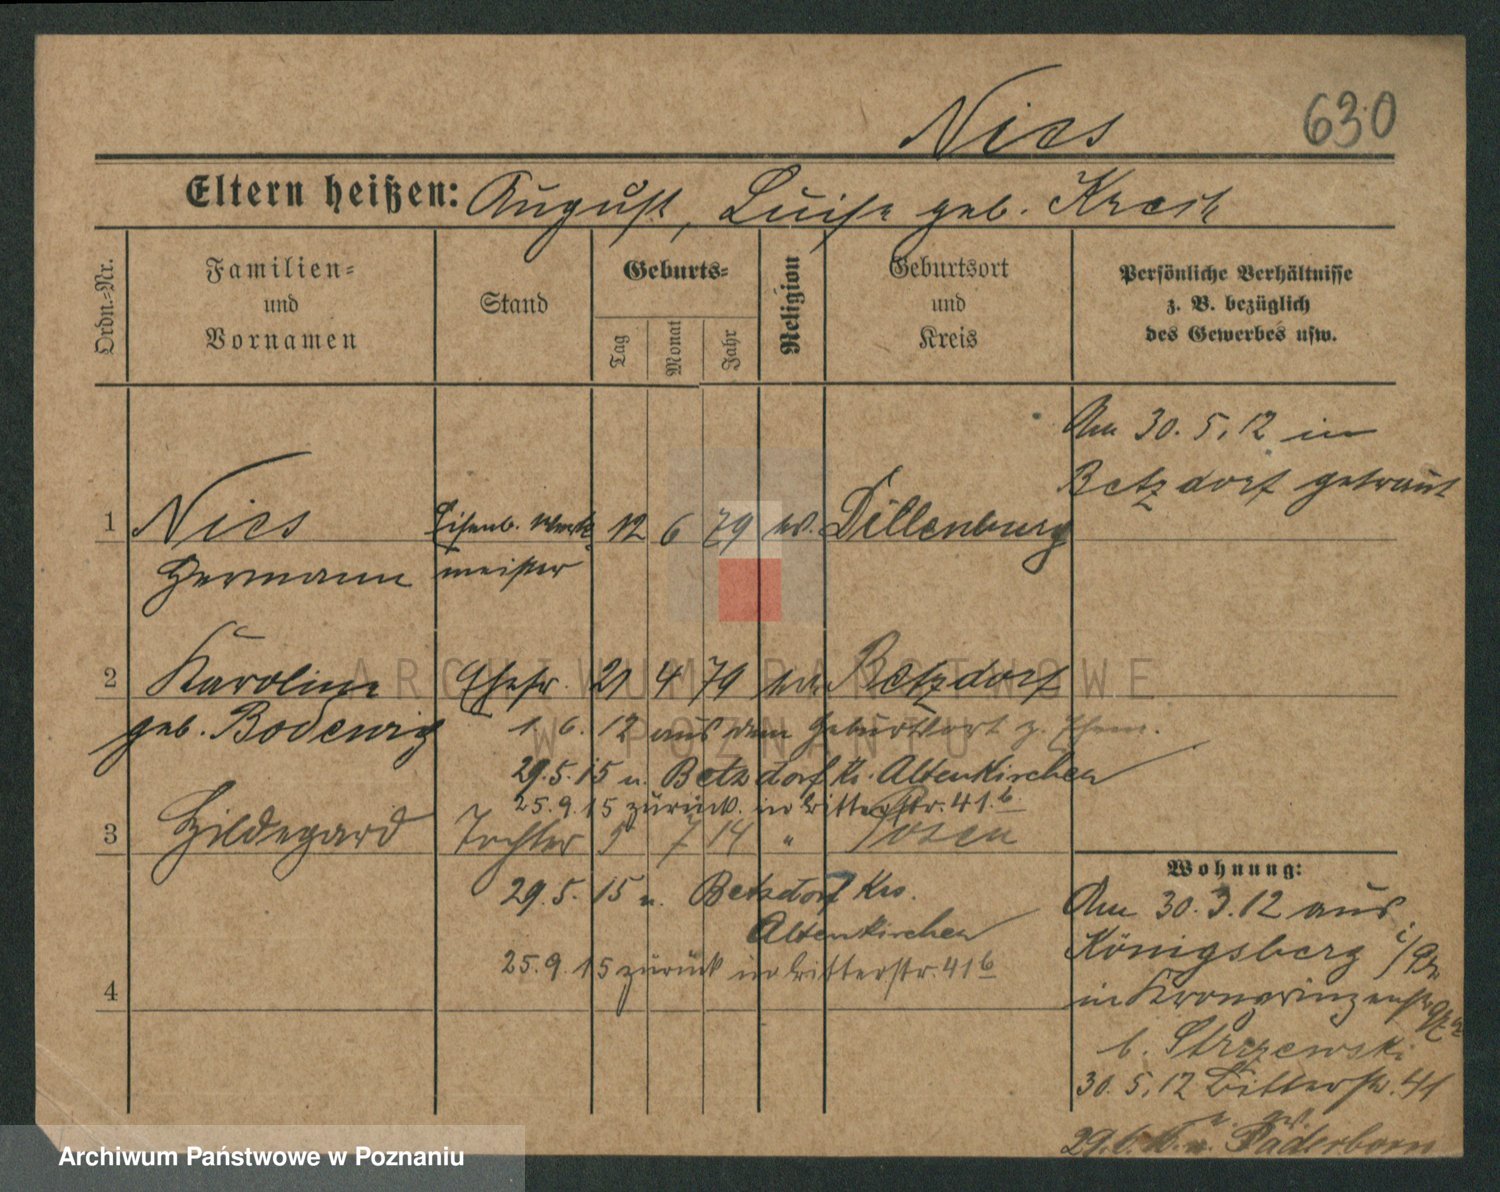 Nies 630
Eltern heißen: August, Luise geb.
Ordn.-Nr.
Familien-
und
Vornamen
Stand
Geburts-
Tag
Monat
Jahr
Religion
Geburtsort
und
Kreis
Persönliche Verhältnisse
z. B. bezüglich
des Gewerbes usw.
Am 30. 5. 12 in
Betzdorf getraut
1 Nies Eisenb. Werk- 12 6 79 ev. Dillenburg
Hermann meister
2 Karoline Ehefr. 21 4 79 Betzdorf
geb. Bodewig 1. 6. 12 aus dem Geburtsort z. Ehem.
29. 5. 15 n. Betzdorf Kr. Altenkirchen
25. 9. 15 zurück in Ritterstr. 41 b
3 Hildegard Tochter 5 7 14 " Posen
29. 5. 15 n. Betzdorf Krs.
Altenkirchen
25. 9. 15 zurück in Ritterstr. 41 b
4
Wohnung:
Am 30. 3. 12 aus
Königsberg i/Pr.
in Kronprinzenstr.
b. Strzewski
30. 5. 12 Ritterstr. 41
n. Paderborn
ARCHIWUM PAŃSTWOWE
W POZNANIU
Archiwum Państwowe w Poznaniu